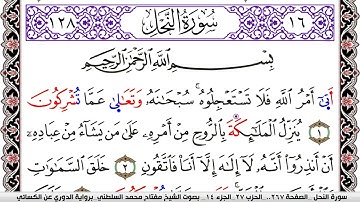 ١٢٨ سُورَةُ النَّحْلِ ١٦
بِسْمِ اللَّهِ الرَّحْمَٰنِ الرَّحِيمِ
أَتَىٰٓ أَمْرُ اللَّهِ فَلَا تَسْتَعْجِلُوهُ سُبْحَٰنَهُۥ وَتَعَٰلَىٰ عَمَّا تُشْرِكُونَ
١ يُنَزِّلُ الْمَلَٰٓئِكَةَ بِالرُّوحِ مِنْ أَمْرِهِۦ عَلَىٰ مَن يَشَآءُ مِنْ عِبَادِهِۦٓ
أَنْ أَنذِرُوٓا۟ أَنَّهُۥ لَآ إِلَٰهَ إِلَّآ أَنَا۠ فَاتَّقُونِ ٢ خَلَقَ السَّمَٰوَٰتِ
سورة النحل الصفحة ٢٦٧.. الحزب ٢٧ الجزء ١٤ .. بصوت الشيخ مفتاح محمد السلطني برواية الدوري عن الكسائي